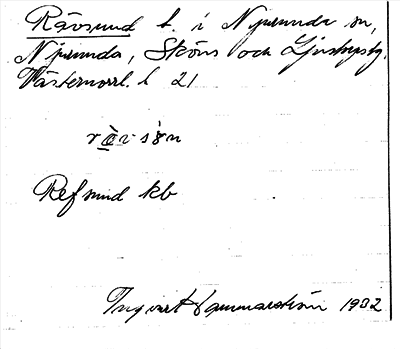 Rävsund t. i Njurunda sn,
Njurunda, Sköns och Ljustorps tg.
Västernorrl. l 21
Refsund kb
Ingvart Hammarström 1932